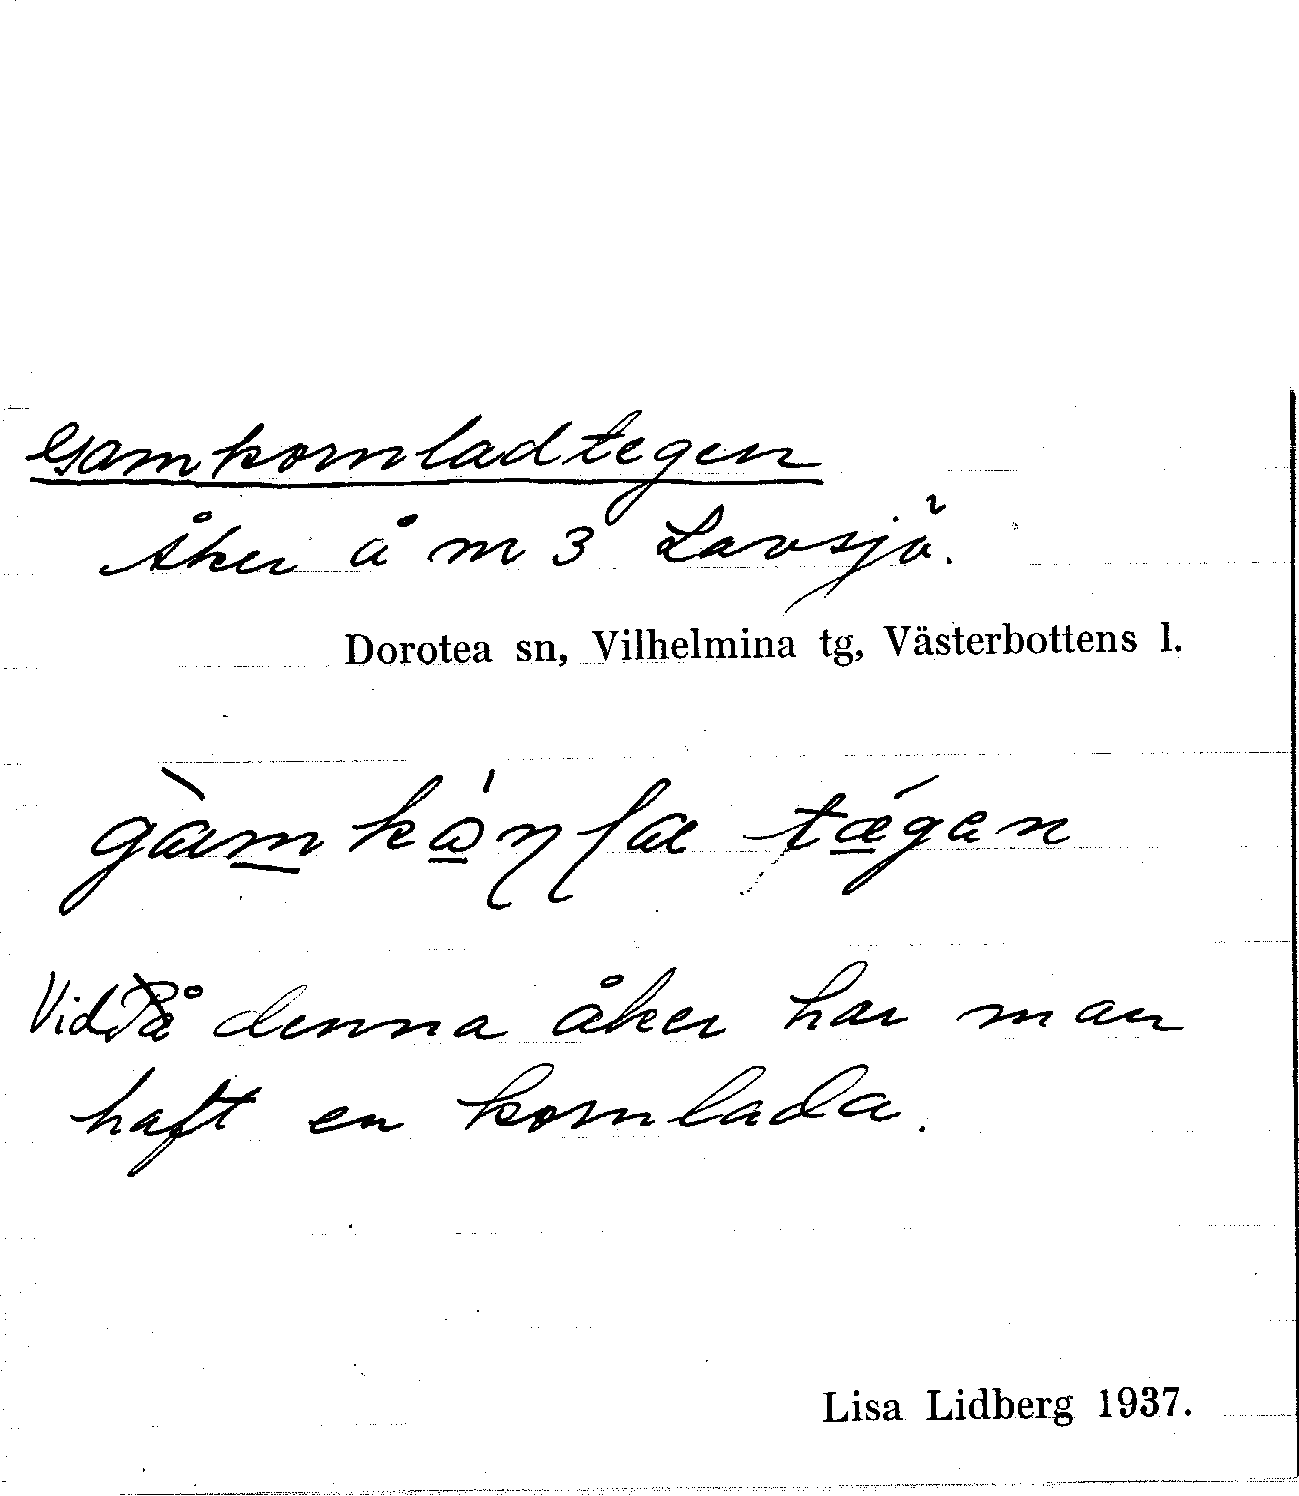 Gamkornladtegen
Åker å m 3 Lavsjö.
Dorotea sn, Vilhelmina tg, Västerbottens l.
Vid denna åker har man
haft en kornlada.
Lisa Lidberg 1937.